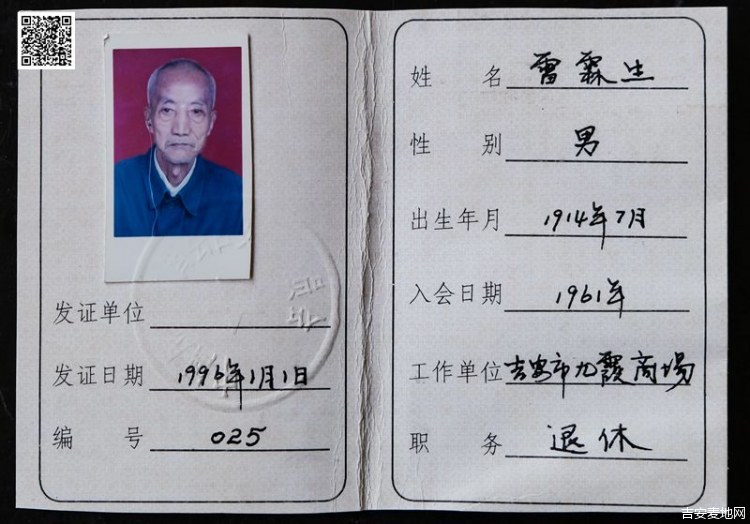 发证单位
发证日期 1996年1月1日
编号 025
姓名 雷霖生
性别 男
出生年月 1914年7月
入会日期 1961年
工作单位 吉安市九霞商場
职务 退休
吉安麦地网